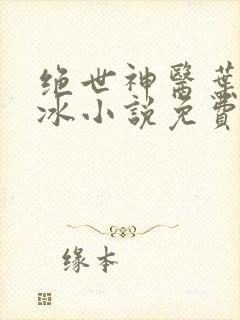 绝世神醫葉
冰小説免費
缘本